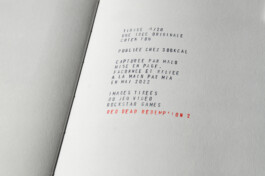 UNE IDÉE ORIGINALE
PUBLIÉE CHEZ
CAPTURÉE PAR
MISE EN PAGE,
FAÇONNÉE ET RELIÉE
À LA MAIN PAR
EN MAI 2022
IMAGES TIRÉES
DU JEU VIDÉO
ROCKSTAR GAMES
RED DEAD REDEMPTION 2